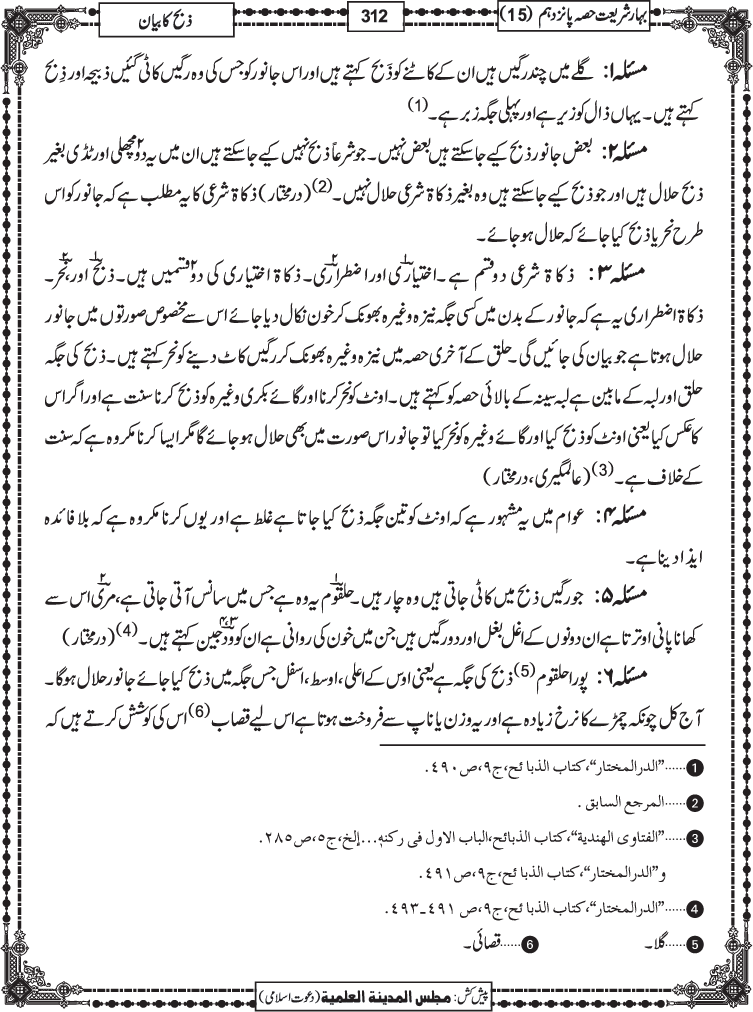 بہار شریعت حصہ پانزدہم (15)
312
ذبح کا بیان
مسئلہ ۱: گلے میں چند رگیں ہیں ان کے کاٹنے کو ذَبح کہتے ہیں اور اس جانور کو جس کی وہ رگیں کاٹی گئیں ذبیحہ اور ذِبح
کہتے ہیں۔ یہاں ذال کو زیر ہے اور پہلی جگہ زبر ہے۔ (1)
مسئلہ ۲: بعض جانور ذبح کیے جاسکتے ہیں بعض نہیں۔ جو شرعاً ذبح نہیں کیے جاسکتے ہیں ان میں یہ دو۲ مچھلی اور ٹڈی بغیر
ذبح حلال ہیں اور جو ذبح کیے جاسکتے ہیں وہ بغیر ذکاۃ شرعی حلال نہیں۔ (2) (درمختار) ذکاۃ شرعی کا یہ مطلب ہے کہ جانور کو اس
طرح نحر یا ذبح کیا جائے کہ حلال ہوجائے۔
مسئلہ ۳: ذکاۃ شرعی دو قسم ہے۔ اختیاری۱ اور اضطراری۲۔ ذکاۃ اختیاری کی دو۲ قسمیں ہیں۔ ذبح۱ اور نحر۲۔
ذکاۃ اضطراری یہ ہے کہ جانور کے بدن میں کسی جگہ نیزہ وغیرہ بھونک کر خون نکال دیا جائے اس سے مخصوص صورتوں میں جانور
حلال ہوتا ہے جو بیان کی جائیں گی۔ حلق کے آخری حصہ میں نیزہ وغیرہ بھونک کر رگیں کاٹ دینے کو نحر کہتے ہیں۔ ذبح کی جگہ
حلق اور لبہ کے مابین ہے لبہ سینہ کے بالائی حصہ کو کہتے ہیں۔ اونٹ کو نحر کرنا اور گائے بکری وغیرہ کو ذبح کرنا سنت ہے اور اگر اس
کا عکس کیا یعنی اونٹ کو ذبح کیا اور گائے وغیرہ کو نحر کیا تو جانور اس صورت میں بھی حلال ہوجائے گا مگر ایسا کرنا مکروہ ہے کہ سنت
کے خلاف ہے۔ (3) (عالمگیری، درمختار)
مسئلہ ۴: عوام میں یہ مشہور ہے کہ اونٹ کو تین جگہ ذبح کیا جاتا ہے غلط ہے اور یوں کرنا مکروہ ہے کہ بلا فائدہ
ایذا دینا ہے۔
مسئلہ ۵: جو رگیں ذبح میں کاٹی جاتی ہیں وہ چار ہیں۔ حلقوم۱ یہ وہ ہے جس میں سانس آتی جاتی ہے، مری۲ اس سے
کھانا پانی اوترتا ہے ان دونوں کے اغل بغل اور دو رگیں ہیں جن میں خون کی روانی ہے ان کو ودجین۳،۴ کہتے ہیں۔ (4) (درمختار)
مسئلہ ۶: پورا حلقوم (5) ذبح کی جگہ ہے یعنی اوس کے اعلی، اوسط، اسفل جس جگہ میں ذبح کیا جائے جانور حلال ہوگا۔
آج کل چونکہ چمڑے کا نرخ زیادہ ہے اور یہ وزن یا ناپ سے فروخت ہوتا ہے اس لیے قصاب (6) اس کی کوشش کرتے ہیں کہ
1 ......"الدرالمختار"، کتاب الذبائح، ج۹، ص۴۹۰.
2 ......المرجع السابق.
3 ......"الفتاوی الھندیة"، کتاب الذبائح، الباب الاول فی رکنہ...إلخ، ج۵، ص۲۸۵.
و"الدرالمختار"، کتاب الذبائح، ج۹، ص۴۹۱.
4 ......"الدرالمختار"، کتاب الذبائح، ج۹، ص ۴۹۱۔۴۹۳.
5 ......گلا۔ 6 ......قصائی۔
پیش کش: مجلس المدینة العلمیة (دعوت اسلامی)